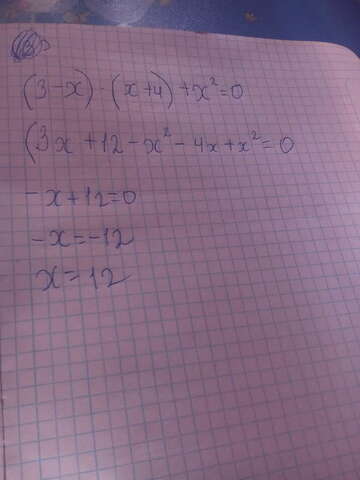 (3-x)·(x+4)+x²=0
(3x+12-x²-4x+x²=0
-x+12=0
-x=-12
x=12